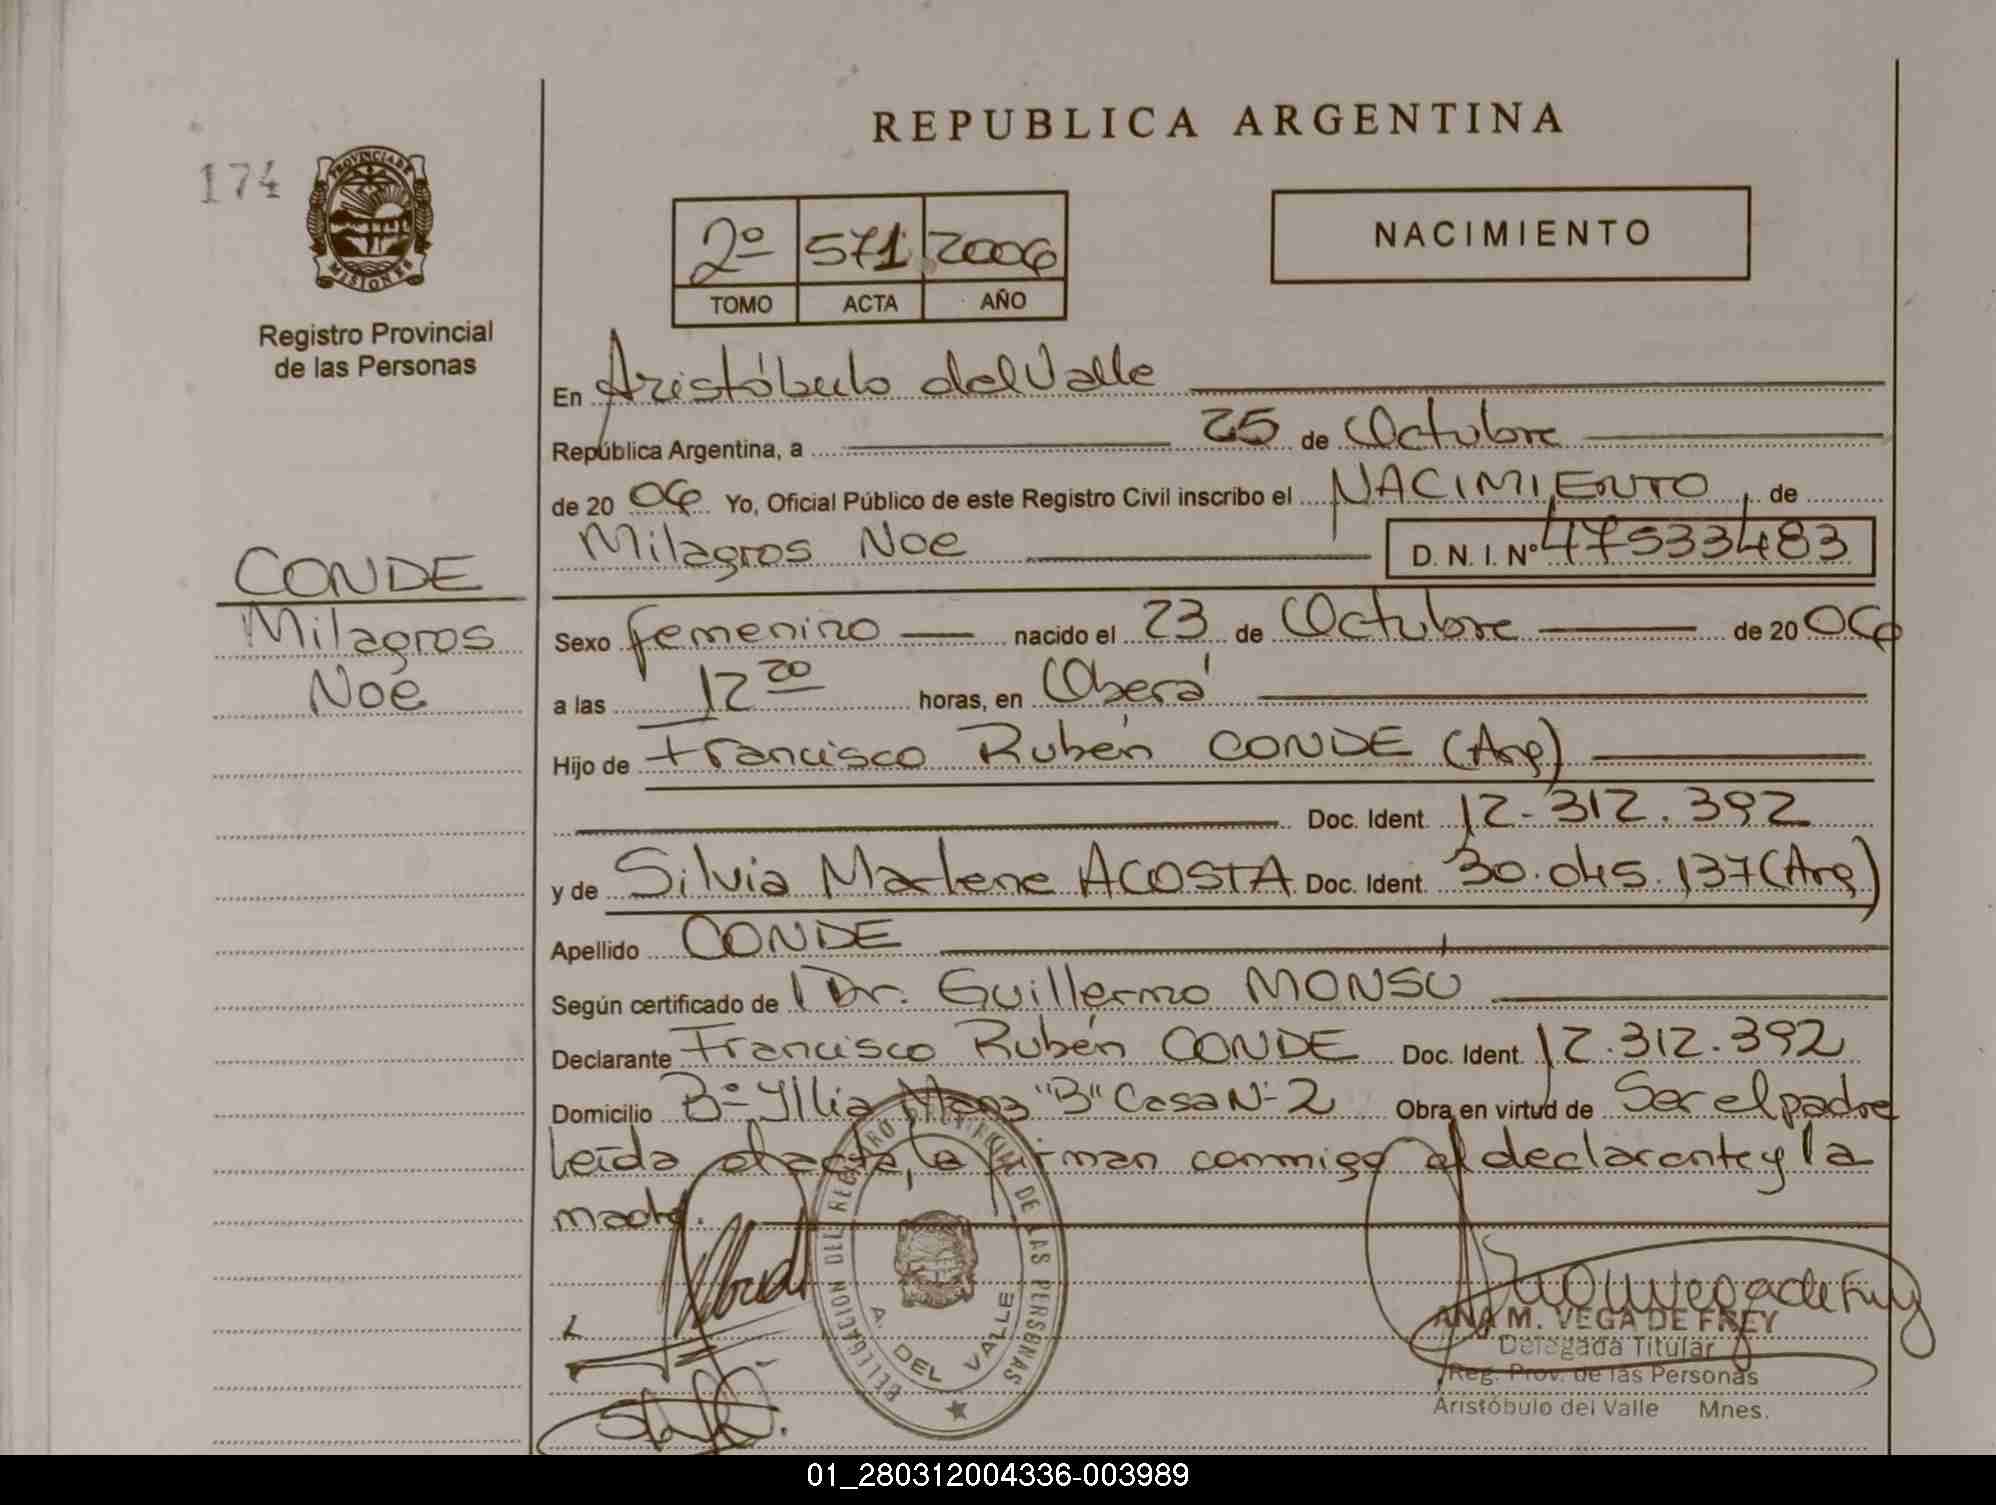 REPUBLICA ARGENTINA
174
PROVINCIA DE
MISIONES
Registro Provincial
de las Personas
2º 571 2006
TOMO ACTA AÑO
NACIMIENTO
En Aristóbulo del Valle
República Argentina, a 25 de Octubre
de 20 06 Yo, Oficial Público de este Registro Civil inscribo el NACIMIENTO, de
Milagros Noe D. N. I. Nº 47533483
CONDE
Milagros
Noé
Sexo femenino nacido el 23 de Octubre de 20 06
a las 12 20 horas, en Oberá
Hijo de Francisco Rubén CONDE (Arg)
Doc. Ident. 12.312.392
y de Silvia Marlene ACOSTA Doc. Ident. 30.045.137 (Arg)
Apellido CONDE
Según certificado de Dr. Guillermo MONSU
Declarante Francisco Rubén CONDE Doc. Ident. 12.312.392
Domicilio Bº Yllia Manz "B" Casa Nº 2 Obra en virtud de Ser el padre
Leída el acta, la firman conmigo el declarante y la
madre.
DELEGACION DEL REGISTRO PROVINCIAL DE LAS PERSONAS
A. DEL VALLE
ANA M. VEGA DE FREY
Delegada Titular
Reg. Prov. de las Personas
Aristóbulo del Valle Mnes.
01_280312004336-003989